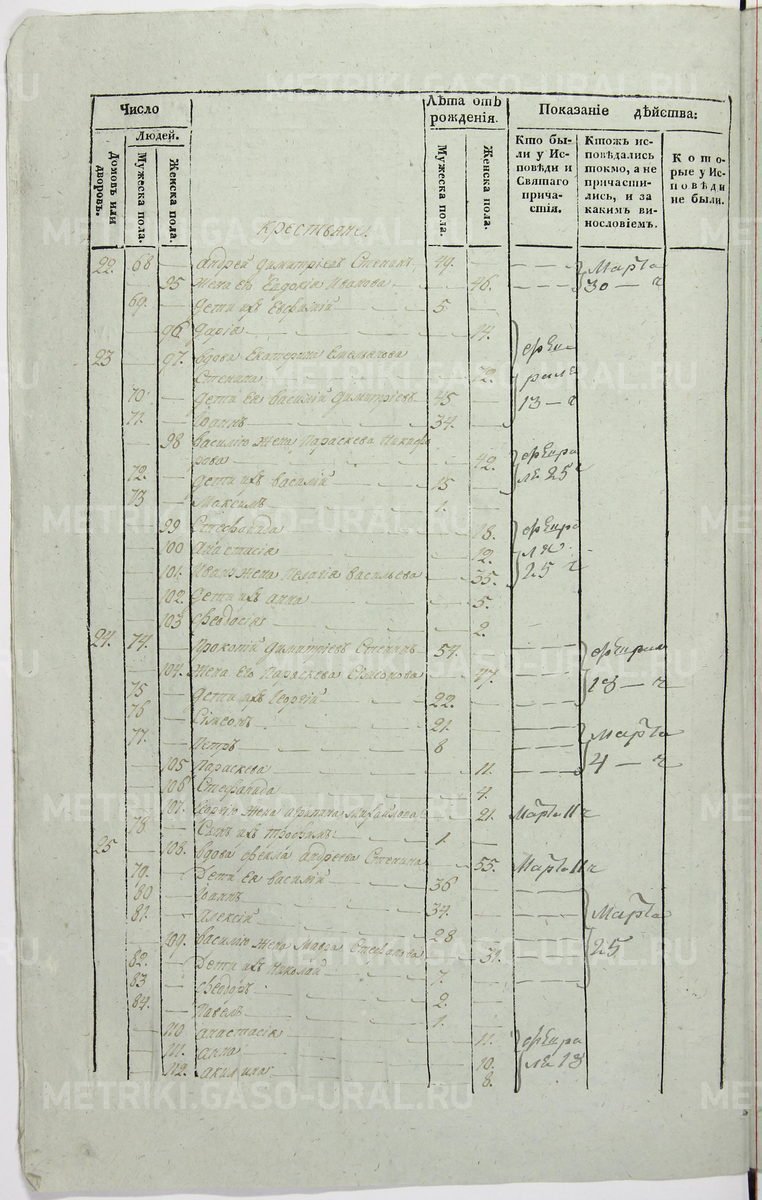 Число
Людей.
Домовъ или дворовъ.
Мужеска пола.
Женска пола.
Лѣта отъ рожденія.
Мужеска пола.
Женска пола.
Показаніе дѣйства:
Кто были у Исповѣди и Святаго причастія.
Ктожъ исповѣдались токмо, а не причастились, и за какимъ винословіемъ.
Которые у Исповѣди не были.
Крестьяне
22. 68 Андрей Димитріевъ Стенинъ 49.
95 Жена его Евдокія Иванова 46.
Марта 30 — г
69. Дети ихъ Евфимій 5
96 Дарія 14.
23 97. Вдова Екатерина Емельянова
Стенина 72.
70. Дети ея Василий Димитріевъ 45
71. Іоаннъ 34.
13 — г
98 Василію жена Параскева Никифо
рова 42.
72. Дети ихъ Василій 15
73 Максимъ 1.
25
99 Стефанида 18.
100 Анастасія 12.
101. Ивану жена Пелагія Васильева 35.
25
102 Дети ихъ Анна 5.
103 Феодосія 2.
24. 74. Прокопій Димитріевъ Стенинъ 54.
104. Жена его Параскева Симонова 47.
75 Дети ихъ Георгій 22.
13 — г
76 Симеонъ 21.
77. Петръ 8
105 Параскева 11.
Марта 4 — г
106 Стефанида 4.
107. Георгію жена Михайлова 21. Марта 11 г
78 Сынъ ихъ Трофимъ 1.
25 108. Вдова Фекла Андреева Стенина 55. Марта 11 г
79. Дети ея Василій 36
80 Іоаннъ 34.
81. Алексій 28
109. Василію жена Мавра Стефанова 31.
Марта 25
82. Дети ихъ Николай 7.
83 Феодоръ 2.
84. Павелъ 1.
110 Анастасія 11.
111. Анна 10.
112. Акилина 8.
13
METRIKI.GASO-URAL.RU